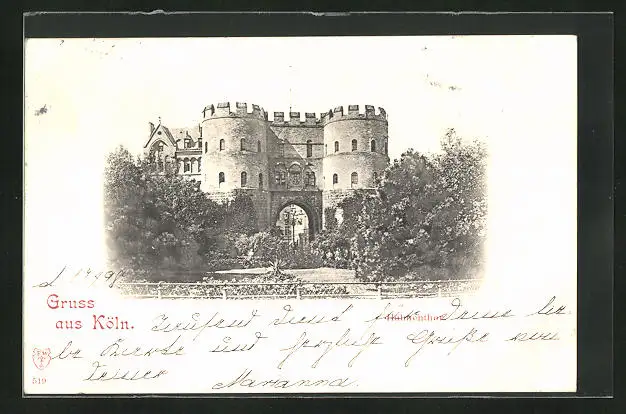 Gruss
aus Köln.
Hahnenthor
Tausend Dank für Deine lie-
be Karte und herzliche Grüße von
Deiner
Marianna.
519